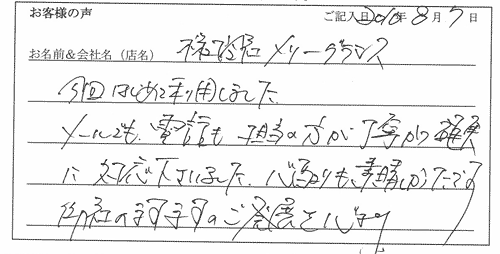 お客様の声 ご記入日 2010年 8月 7日
お名前&会社名(店名) 株式会社 メリーグランス
今回はじめて利用しました
メールでも、電話も担当の方が丁寧かつ確実
に対応下さいました。心配りも素晴しかったです
御社のますますのご発展を